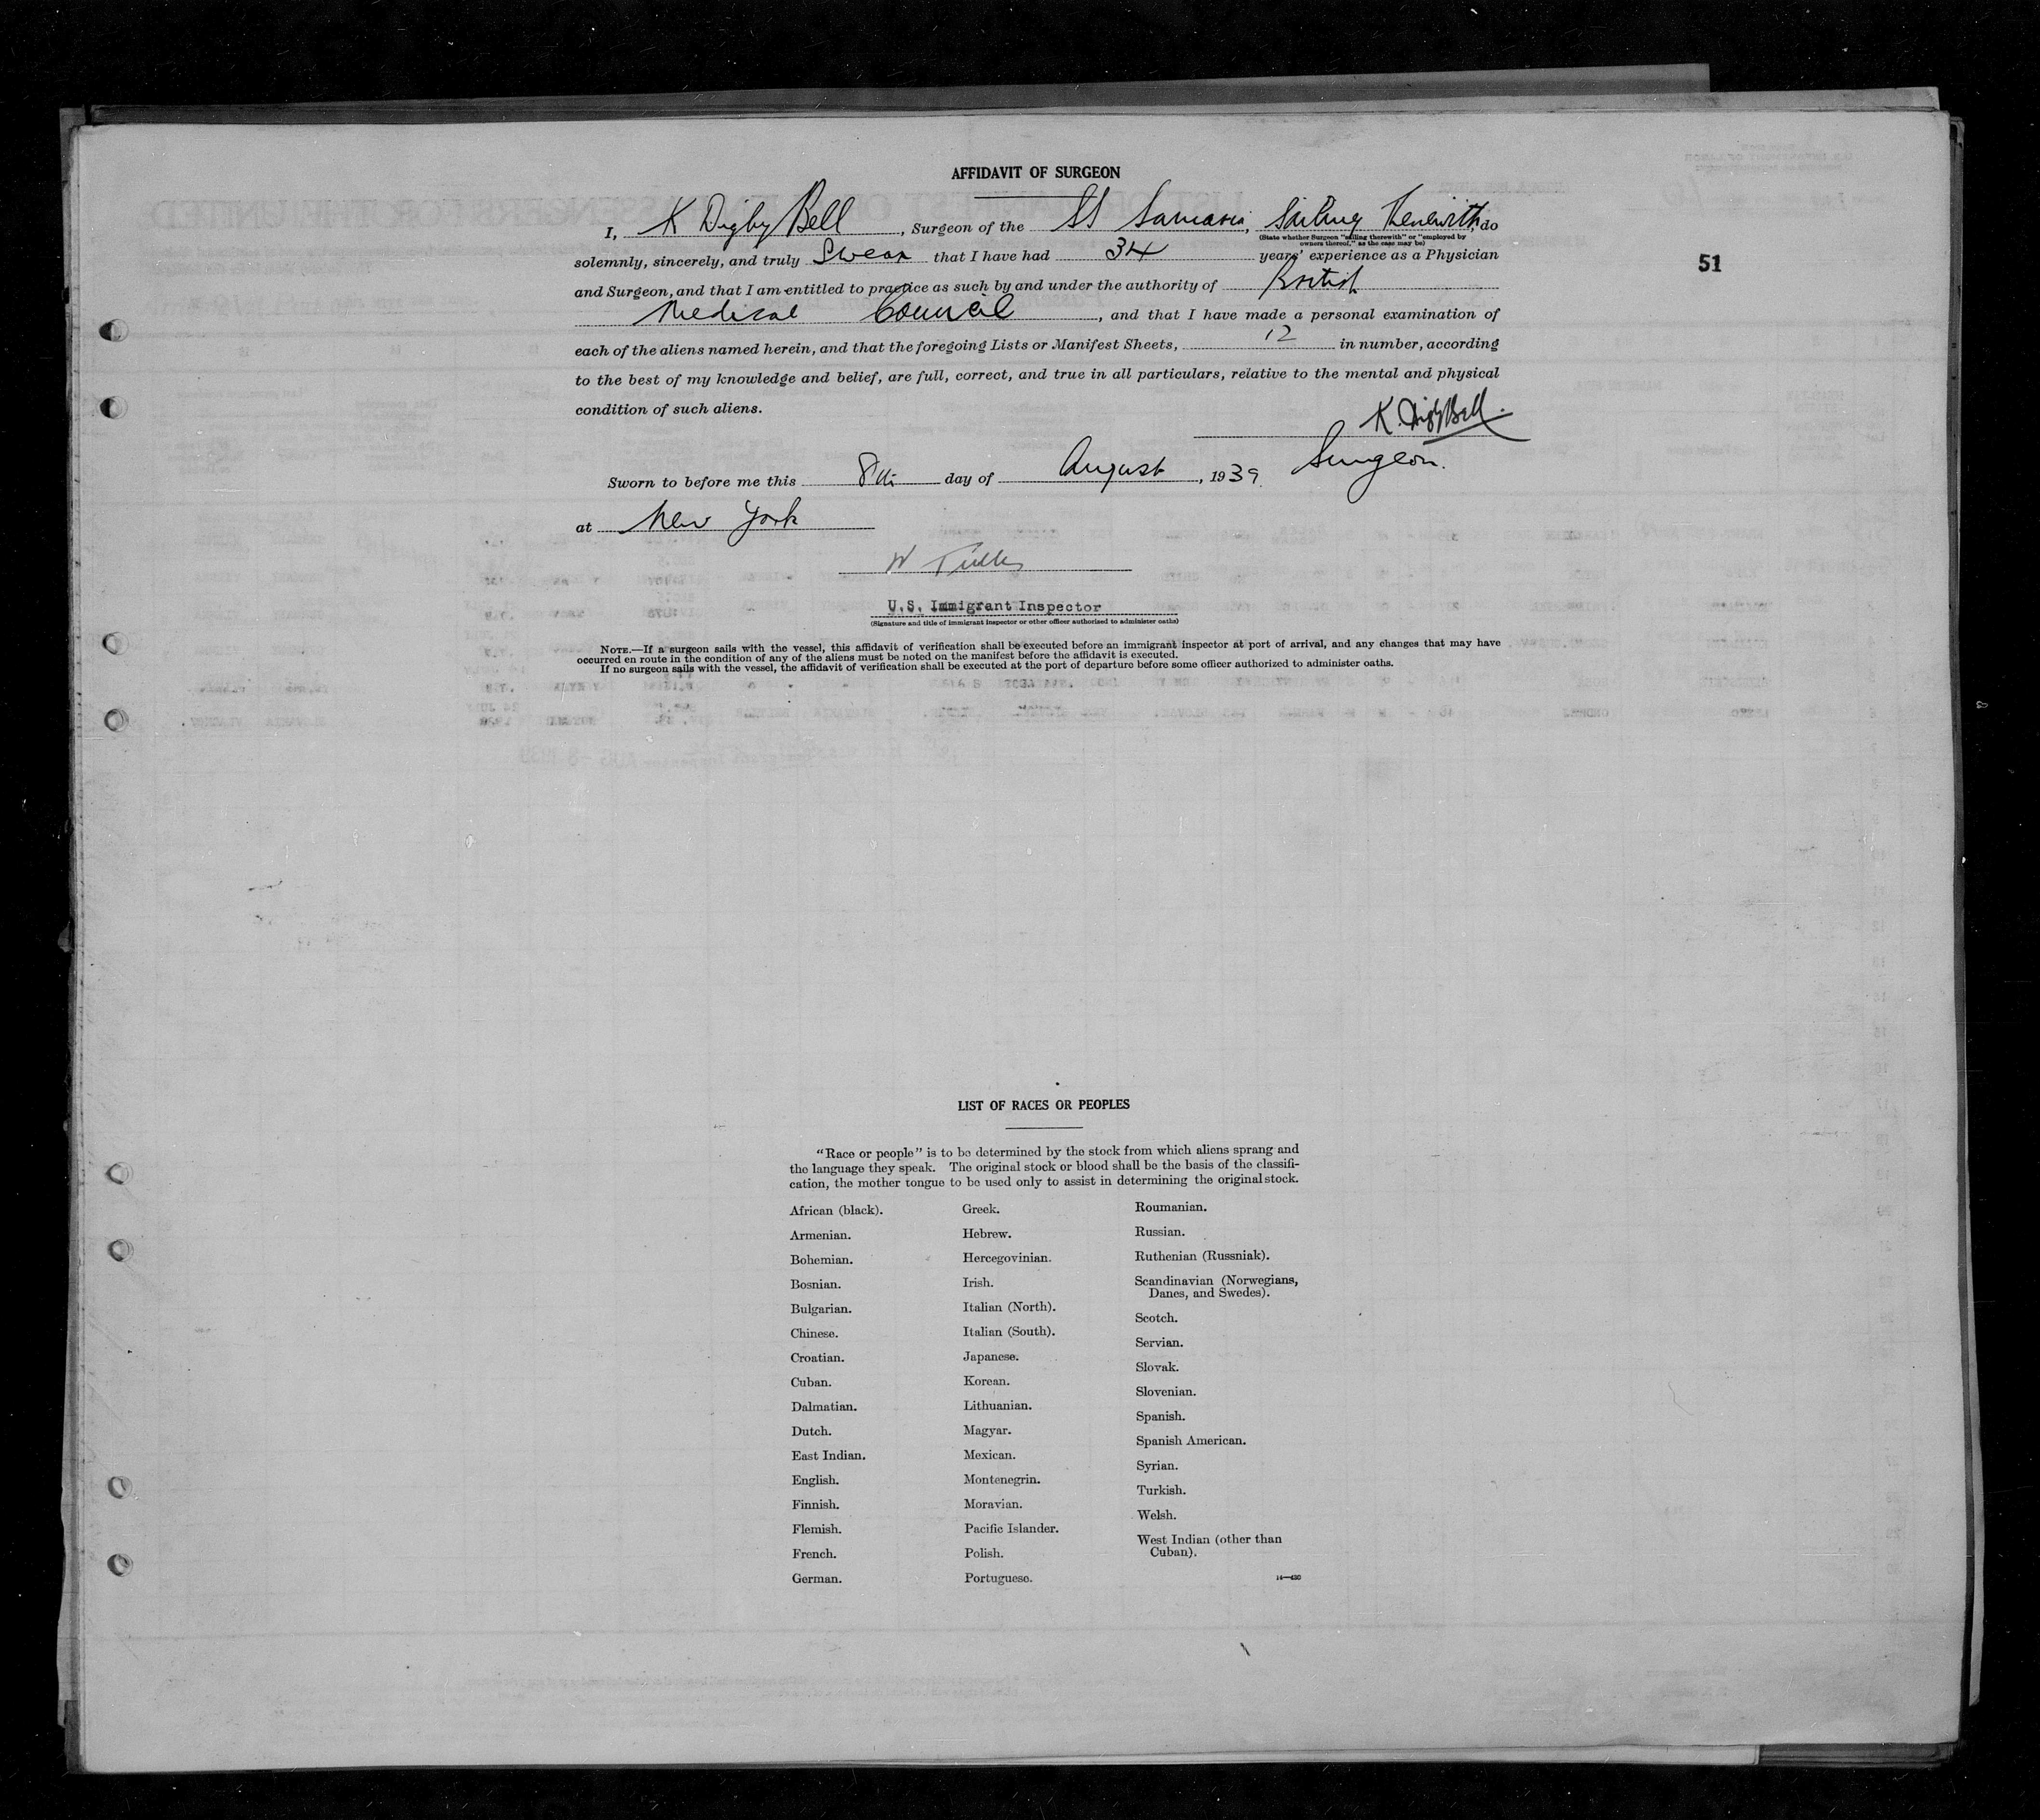 AFFIDAVIT OF SURGEON
I, K Digby Bell, Surgeon of the SS Samaria, Sailing Therewith, do
(State whether Surgeon "sailing therewith" or "employed by
owners thereof," as the case may be)
solemnly, sincerely, and truly Swear that I have had 34 years' experience as a Physician
51
and Surgeon, and that I am entitled to practice as such by and under the authority of British
Medical Council, and that I have made a personal examination of
each of the aliens named herein, and that the foregoing Lists or Manifest Sheets, 12 in number, according
to the best of my knowledge and belief, are full, correct, and true in all particulars, relative to the mental and physical
condition of such aliens.
K. Digby Bell.
Surgeon.
Sworn to before me this 8th day of August, 1939.
at New York
W
U.S. Immigrant Inspector
(Signature and title of immigrant inspector or other officer authorized to administer oaths)
NOTE.—If a surgeon sails with the vessel, this affidavit of verification shall be executed before an immigrant inspector at port of arrival, and any changes that may have
occurred en route in the condition of any of the aliens must be noted on the manifest before the affidavit is executed.
If no surgeon sails with the vessel, the affidavit of verification shall be executed at the port of departure before some officer authorized to administer oaths.
LIST OF RACES OR PEOPLES
"Race or people" is to be determined by the stock from which aliens sprang and
the language they speak. The original stock or blood shall be the basis of the classifi-
cation, the mother tongue to be used only to assist in determining the original stock.
African (black).
Armenian.
Bohemian.
Bosnian.
Bulgarian.
Chinese.
Croatian.
Cuban.
Dalmatian.
Dutch.
East Indian.
English.
Finnish.
Flemish.
French.
German.
Greek.
Hebrew.
Hercegovinian.
Irish.
Italian (North).
Italian (South).
Japanese.
Korean.
Lithuanian.
Magyar.
Mexican.
Montenegrin.
Moravian.
Pacific Islander.
Polish.
Portuguese.
Roumanian.
Russian.
Ruthenian (Russniak).
Scandinavian (Norwegians,
Danes, and Swedes).
Scotch.
Servian.
Slovak.
Slovenian.
Spanish.
Spanish American.
Syrian.
Turkish.
Welsh.
West Indian (other than
Cuban).
14—430